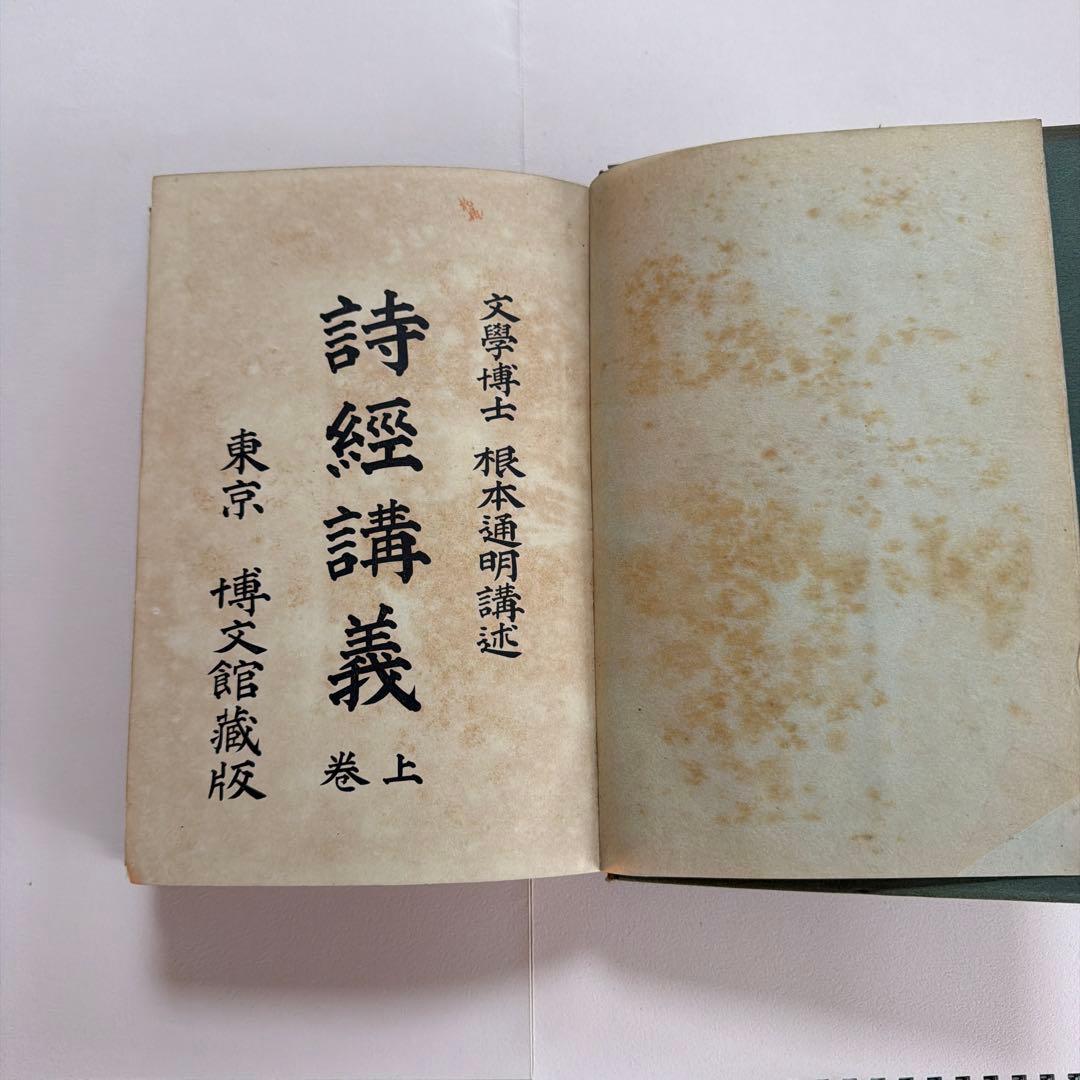 文學博士 根本通明講述
詩經講義 上卷
東京 博文館藏版